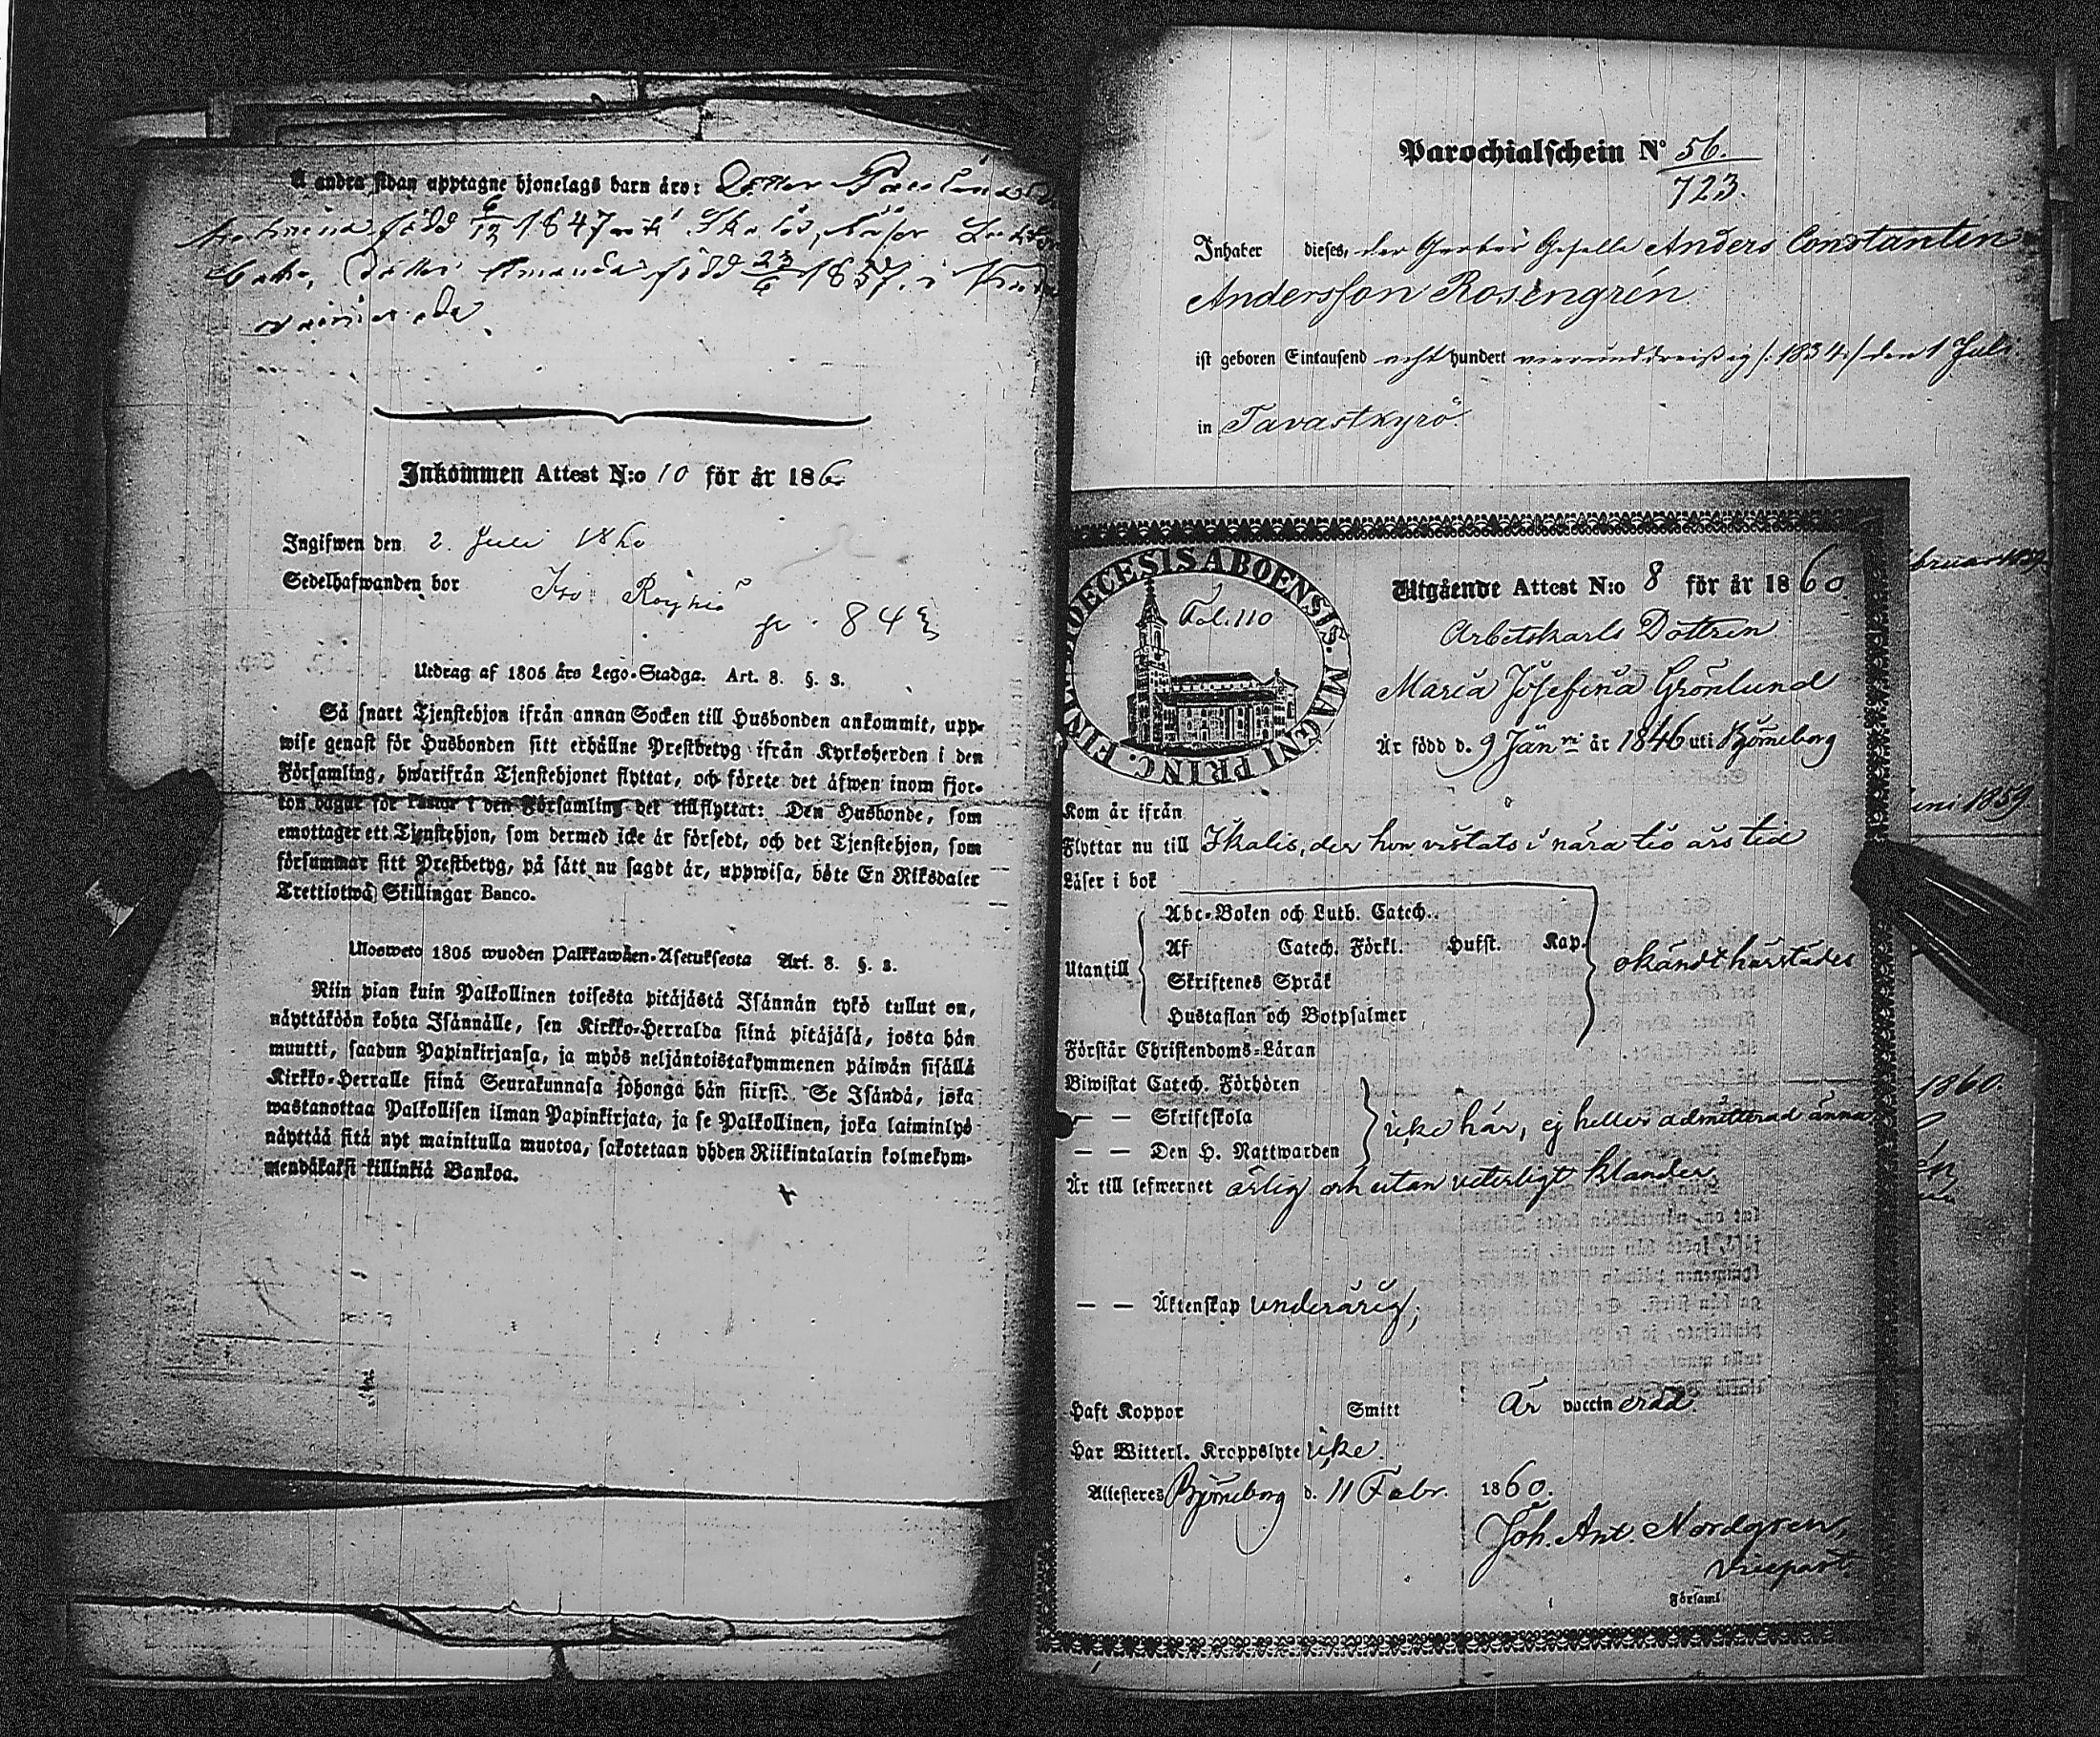 Å andra sidan upptagne hjonelags barn äro: Dotter
född 6/12 1847 i Ikalis, läser
Cate, Dotter Amanda född 23/6 1857 i
Inkommen Attest N:o 10 för år 186
Ingifwen den 2. Juli 1860
Sedelhafwanden bor Iso Röyhiö
p. 843
Utdrag af 1805 års Lego-Stadga. Art. 8. §. 3.
Så snart Tjenstehjon ifrån annan Socken till Husbonden ankommit, upp-
wise genast för Husbonden sitt erhållne Prestbetyg ifrån Kyrkoherden i den
Församling, hwarifrån Tjenstehjonet flyttat, och förete det äfwen inom fjor-
ton dagar för i den Församling det tillflyttat: Den Husbonde, som
emottager ett Tjenstehjon, som dermed icke är försedt, och det Tjenstehjon, som
försummar sitt Prestbetyg, på sätt nu sagdt är, uppwisa, böte En Riksdaler
Trettiotwå Skillingar Banco.
Ulosweto 1805 wuoden Palkkawäen-Asetuksesta Art. 8. §. 3.
Niin pian kuin Palkollinen toisesta pitäjästä Isännän tykö tullut on,
näyttäköön kohta Isännälle, sen Kirkko-Herralda siinä pitäjäsä, josta hän
muutti, saadun Papinkirjansa, ja myös neljäntoistakymmenen päiwän sisällä
Kirkko-Herralle siinä Seurakunnasa johonga hän siirsi. Se Isändä, joka
wastanottaa Palkollisen ilman Papinkirjata, ja se Palkollinen, joka laiminlyö
näyttää sitä nyt mainitulla muotoa, sakotetaan yhden Riikintalarin kolmekym-
mendäkaksi killinkiä Bankoa.
Parochialschein N° 56.
723.
Inhaber dieses, der Gerber Geselle Anders Constantin
Andersson Rosengrén
ist geboren Eintausend acht hundert vierunddreißig /: 1834 :/ den 1 Juli
in Tavastkyrö.
bruar 1859.
uni 1859
1860.
FINL. DIOECESIS ABOENSIS. MAGNI PRINC.
Fol. 110
Utgående Attest N:o 8 för år 1860
Arbetskarls Dottren
Maria Josefina Grönlund
Är född d. 9 Jan:ri år 1846 uti Björneborg
Kom år ifrån
Flyttar nu till Ikalis, der hon vistats i nära tio års tid
Läser i bok
Utantill
Abc-Boken och Luth. Catech.
Af Catech. Förkl. Hufst. Kap.
Skriftenes Språk
Hustaflan och Botpsalmer
okändt härstädes
Förstår Christendoms-Läran
Biwistat Catech. Förhören
— — Skriftskola
— — Den H. Nattwarden
icke här, ej heller admitterad ännu
Är till lefwernet ärlig och utan veterligt klander
— — Äktenskap underårig;
Haft Koppor Smitt Är vaccinerad.
Har Witterl. Kroppslyte icke.
Attesteres Björneborg d. 11 Febr. 1860.
Joh. Ant. Nordgren,
Vicepast.
Församl.